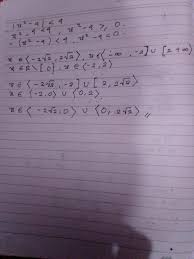 |x²-4| < 4
x²-4 < 4 , x²-4 ≥ 0
-(x²-4) < 4 , x²-4 < 0
x ∈ ⟨-2√2, 2√2⟩, x ∈ ⟨-∞, -2] ∪ [2, +∞⟩
x ∈ R \ {0}, x ∈ ⟨-2, 2⟩
x ∈ ⟨-2√2, -2] ∪ [2, 2√2⟩
x ∈ ⟨-2, 0⟩ ∪ ⟨0, 2⟩
x ∈ ⟨-2√2, 0⟩ ∪ ⟨0, 2√2⟩